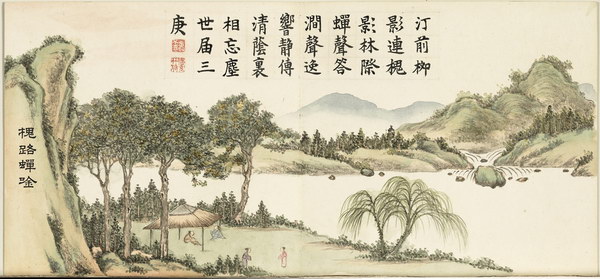 汀前柳
影連槐
影林際
蟬聲答
澗聲逸
響靜傳
清蔭裏
相忘塵
世届三
庚
槐路蟬唫